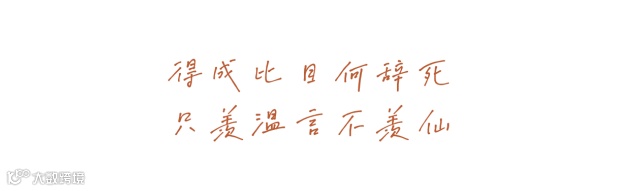 得成比目何辞死
只羡温言不羡仙
大数跨境